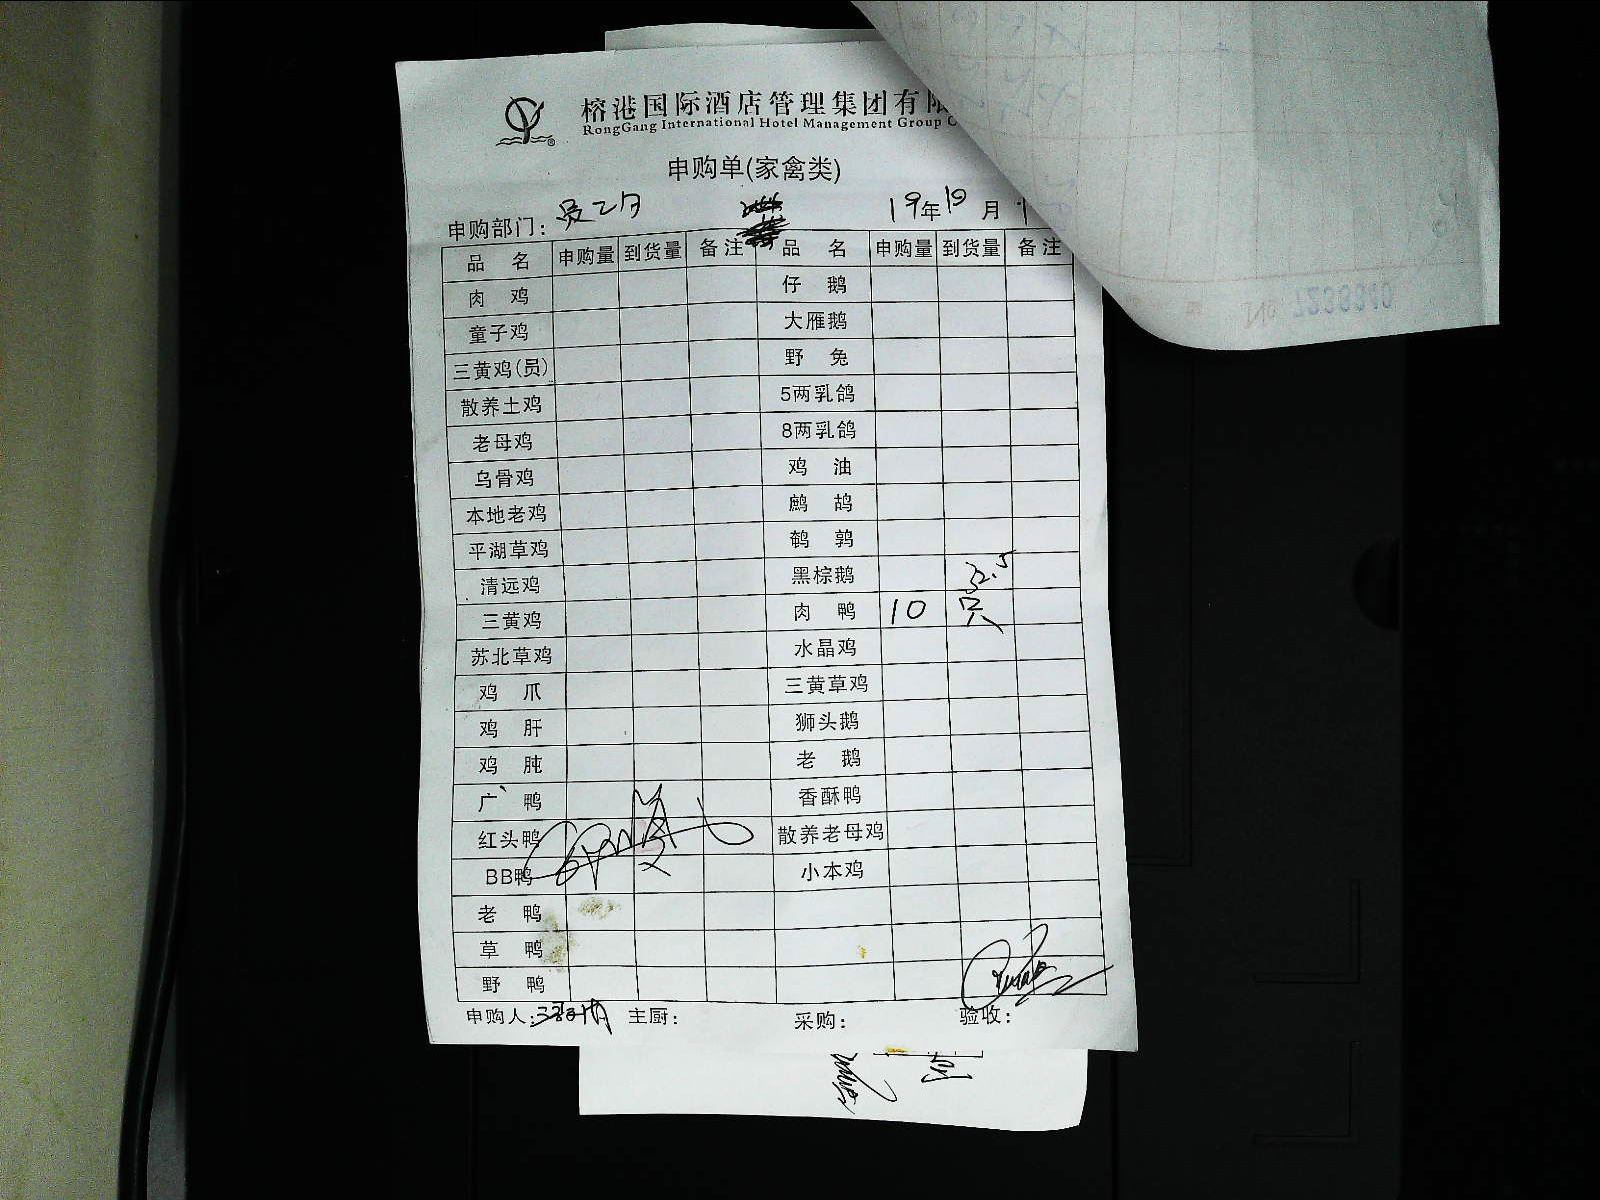 榕港国际酒店管理集团有限
RongGang International Hotel Management Group C
申购单(家禽类)
申购部门: 员工 19年10月
品名 申购量 到货量 备注 品名 申购量 到货量 备注
肉鸡 仔鹅
童子鸡 大雁鹅
三黄鸡(员) 野兔
散养土鸡 5两乳鸽
老母鸡 8两乳鸽
乌骨鸡 鸡油
本地老鸡 鹧鸪
平湖草鸡 鹌鹑
清远鸡 黑棕鹅 32.5
三黄鸡 肉鸭 10 只
苏北草鸡 水晶鸡
鸡爪 三黄草鸡
鸡肝 狮头鹅
鸡肫 老鹅
广鸭 香酥鸭
红头鸭 散养老母鸡
BB鸭 小本鸡
老鸭
草鸭
野鸭
申购人: 主厨: 采购: 验收:
No 7236310